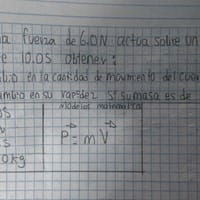 a fuerza de 6.0N actua sobre un
e 10.0s obtener:
bio en la cantidad de movimiento del cuer
ambio en su rapidez si su masa es de
0S Modelos matematicos
N
S P = m V
0kg